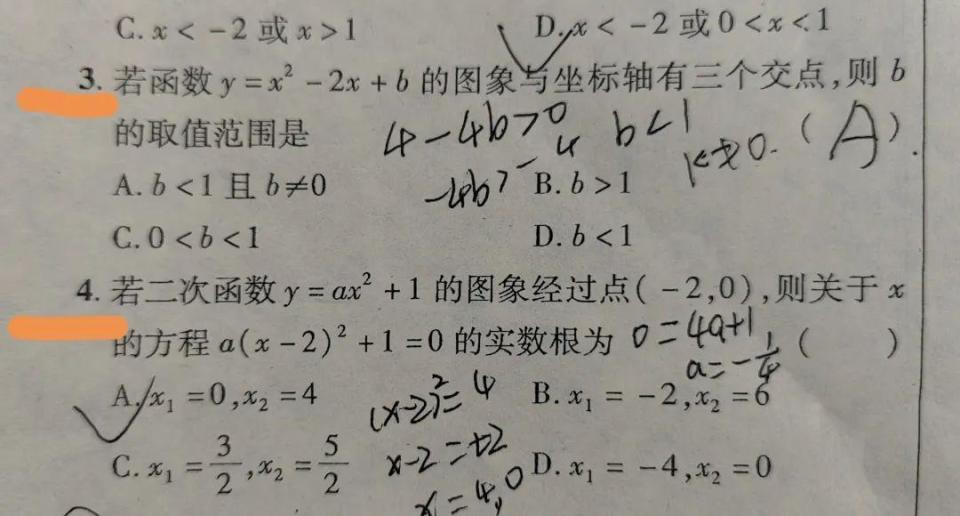 C. x < -2 或 x > 1 D. x < -2 或 0 < x < 1
3. 若函数 y = x² - 2x + b 的图象与坐标轴有三个交点,则 b
的取值范围是 (A)
4-4b>0 b<1
k≠0.
A. b < 1 且 b ≠ 0 B. b > 1
-4b>-4
C. 0 < b < 1 D. b < 1
4. 若二次函数 y = ax² + 1 的图象经过点( -2,0),则关于 x
的方程 a(x - 2)² + 1 = 0 的实数根为 ( )
0=4a+1
a=-1/4
A. x₁ = 0, x₂ = 4 B. x₁ = -2, x₂ = 6
(x-2)²=4
C. x₁ = 3/2, x₂ = 5/2 D. x₁ = -4, x₂ = 0
x-2=±2
x=4,0